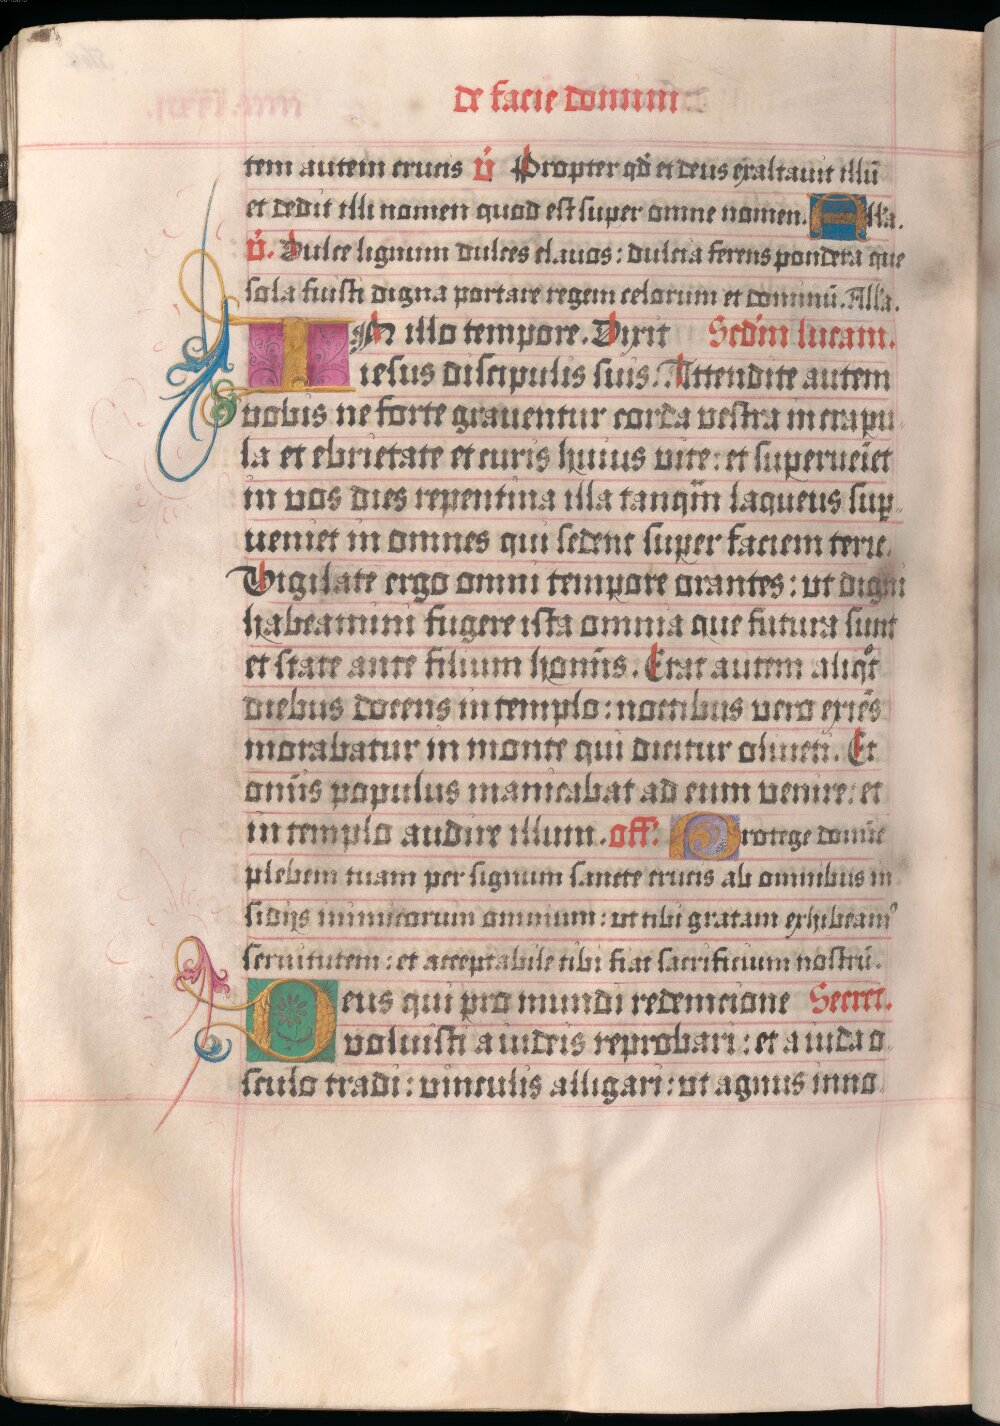 de facie domini
tem autem crucis v̄ Propter qď et deus exaltauit illū
et dedit illi nomen quod est super omne nomen. Alła.
v̄. Dulce lignum dulces clauos: dulcia ferens pondera que
sola fuisti digna portare regem celorum et dominū. Alła.
IN illo tempore. Dixit Secďm lucam.
iesus discipulis suis. Attendite autem
uobis ne forte grauentur corda vestra in crapu-
la et ebrietate et curis huius vite: et superueiēt
in vos dies repentina illa tanqm̄ laqueus sup-
ueniet in omnes qui sedent super faciem terre.
Vigilate ergo omni tempore orantes: vt digni
habeamini fugere ista omnia que futura sunt
et state ante filium homīs. Erat autem aliqͦt
diebus docens in templo: noctibus vero exiēs
morabatur in monte qui dicitur oliueti. Et
omīs populus manicabat ad eum venire: et
in templo audire illum. off: Protege domīe
plebem tuam per signum sancte crucis ab omnibus in-
sidijs inimicorum omnium: vt tibi gratam exhibeamꝰ
seruitutem: et acceptabile tibi fiat sacrificium nostrū.
Deus qui pro mundi redemcione Secret.
voluisti a iudeis reprobari: et a iuda o-
sculo tradi: vinculis alligari: vt agnus inno-